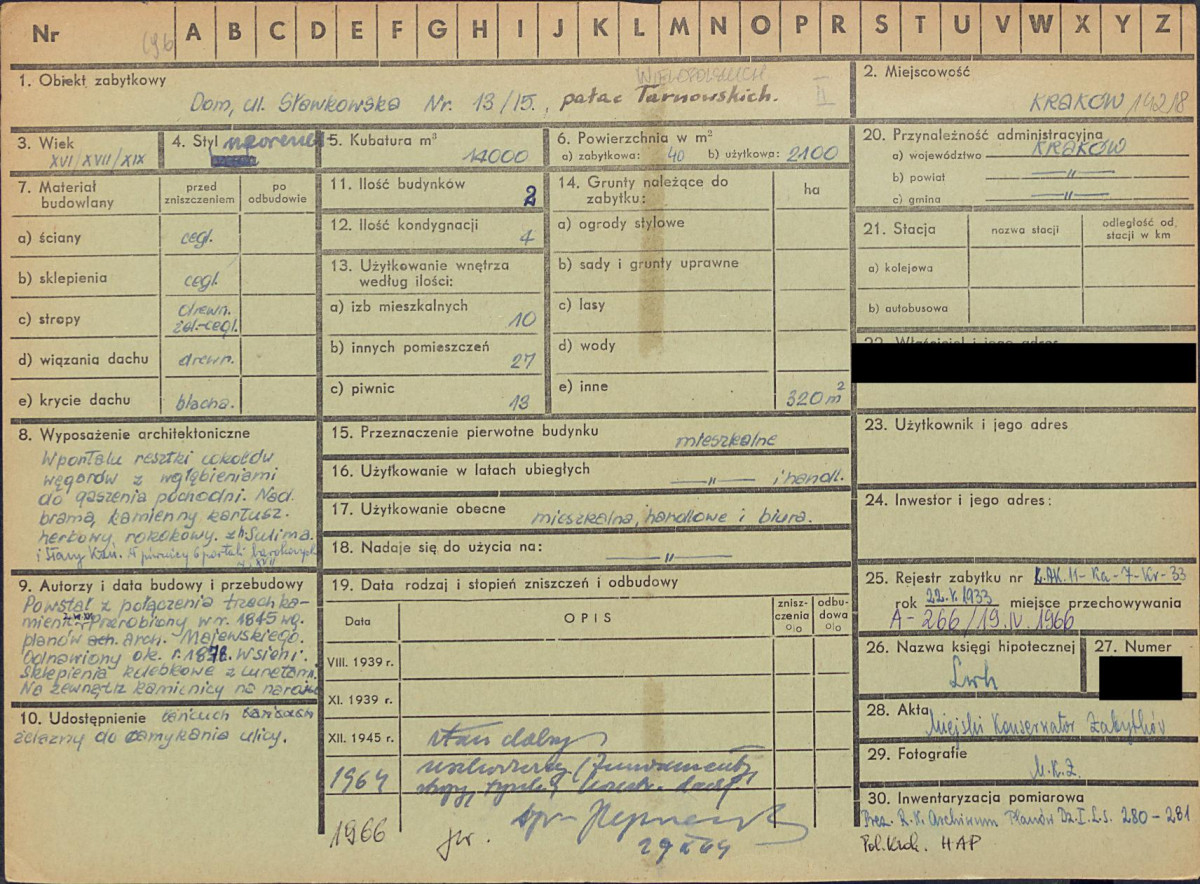 Nr A B C D E F G H I J K L M N O P R S T U V W X Y Z
1. Obiekt zabytkowy
WIELOPOLSKICH
II
Dom, ul. Sławkowska Nr. 13/15., pałac Tarnowskich.
2. Miejscowość
KRAKÓW 14218
3. Wiek
XVI/XVII/XIX
4. Styl
5. Kubatura m³
14000
6. Powierzchnia w m²
a) zabytkowa: 40 b) użytkowa: 2100
20. Przynależność administracyjna
a) województwo KRAKÓW
b) powiat —"—
c) gmina —"—
7. Materiał budowlany
przed zniszczeniem
po odbudowie
a) ściany cegl.
b) sklepienia cegl.
c) stropy drewn.
żel.-cegl.
d) wiązania dachu drewn.
e) krycie dachu blacha.
11. Ilość budynków 2
12. Ilość kondygnacji 4
13. Użytkowanie wnętrza
według ilości:
a) izb mieszkalnych 10
b) innych pomieszczeń 27
c) piwnic 13
14. Grunty należące do
zabytku:
ha
a) ogrody stylowe
b) sady i grunty uprawne
c) lasy
d) wody
e) inne 320 m²
21. Stacja
nazwa stacji
odległość od
stacji w km
a) kolejowa
b) autobusowa
8. Wyposażenie architektoniczne
W portalu resztki cokołów
węgarów z wgłębieniami
do gaszenia pochodni. Nad
bramą, kamienny kartusz.
herbowy, rokokowy. z h. Sulima.
W piwnicy 6 portali barokowych
z XVII
15. Przeznaczenie pierwotne budynku mieszkalne
16. Użytkowanie w latach ubiegłych —"— i handl.
17. Użytkowanie obecne mieszkalna, handlowe i biura.
18. Nadaje się do użycia na: —"—
23. Użytkownik i jego adres
24. Inwestor i jego adres:
9. Autorzy i data budowy i przebudowy
Powstał z połączenia trzech ka-
mienic z w. XVI Przerobiony w r. 1845 wg.
planów arch. Majewskiego.
Odnawiony ok. r. 1878. W sieni
sklepienia kolebkowe z lunetami.
Na zewnątrz kamienicy na narożu
10. Udostępnienie łańcuch
żelazny do zamykania ulicy.
19. Data rodzaj i stopień zniszczeń i odbudowy
Data
OPIS
znisz-
czenia
%
odbu-
dowa
%
VIII. 1939 r.
XI. 1939 r.
XII. 1945 r. stan dobry
1964 uszkodzenia fundamenty
29 X 64
1966
25. Rejestr zabytku nr L.AK.11-Ka-7-Kr-33
rok 22.V.1933 miejsce przechowywania
A-266/19.IV.1966
26. Nazwa księgi hipotecznej
Lwh
27. Numer
28. Akta Miejski Konserwator Zabytków
29. Fotografie
M.K.Z.
30. Inwentaryzacja pomiarowa
Prez. R.N. Archiwum Planów Dz. I. L.s. 280-281
Pol. Krak. HAP